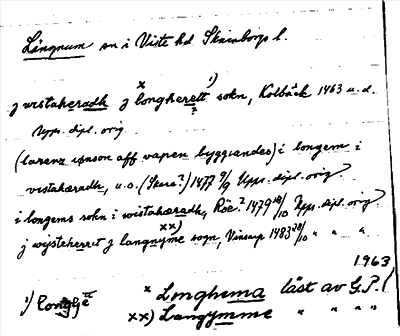 Långnum sn i Viste hd Skaraborgs l.
x 1)
j wistaheradh j longherett sokn, Kolbäck 1463 u. d.
?
Upps. dipl. orig.
(larenz iønson aff vapen byggiandes) i longem i
vistahæradh, u.o. (Skara?) 1477 9/9 Upps. dipl. orig.
i longems sokn i wistahæradh, Röe? 1479 /10 Upps. dipl. orig.
xx)
j wysteherrit j langnyme sogn, Vinsarp 1483 28/10 " " "
1963
1) longhe x Lmghema läst av G.P.(
xx) Langymme " " " "